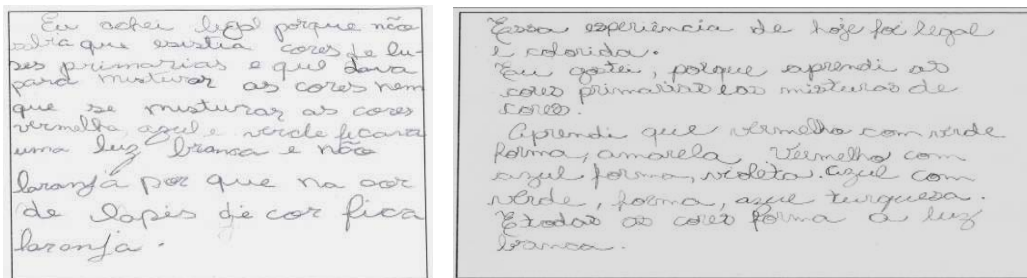 Eu achei legal porque não
sabia que existia cores de lu-
ses primarias e que dava
para misturar as cores nem
que se misturar as cores
vermelha, azul e verde ficava
uma luz branca e não
laranja por que na cor
de lapis de cor fica
laranja.
Essa experiência de hoje foi legal
e colorida.
Eu gostei, porque aprendi as
cores primarias e as misturas de
cores.
Aprendi que vermelho com verde
forma, amarela. Vermelho com
azul forma, violeta. Azul com
verde, forma, azul turquesa.
E todas as cores forma a luz
branca.